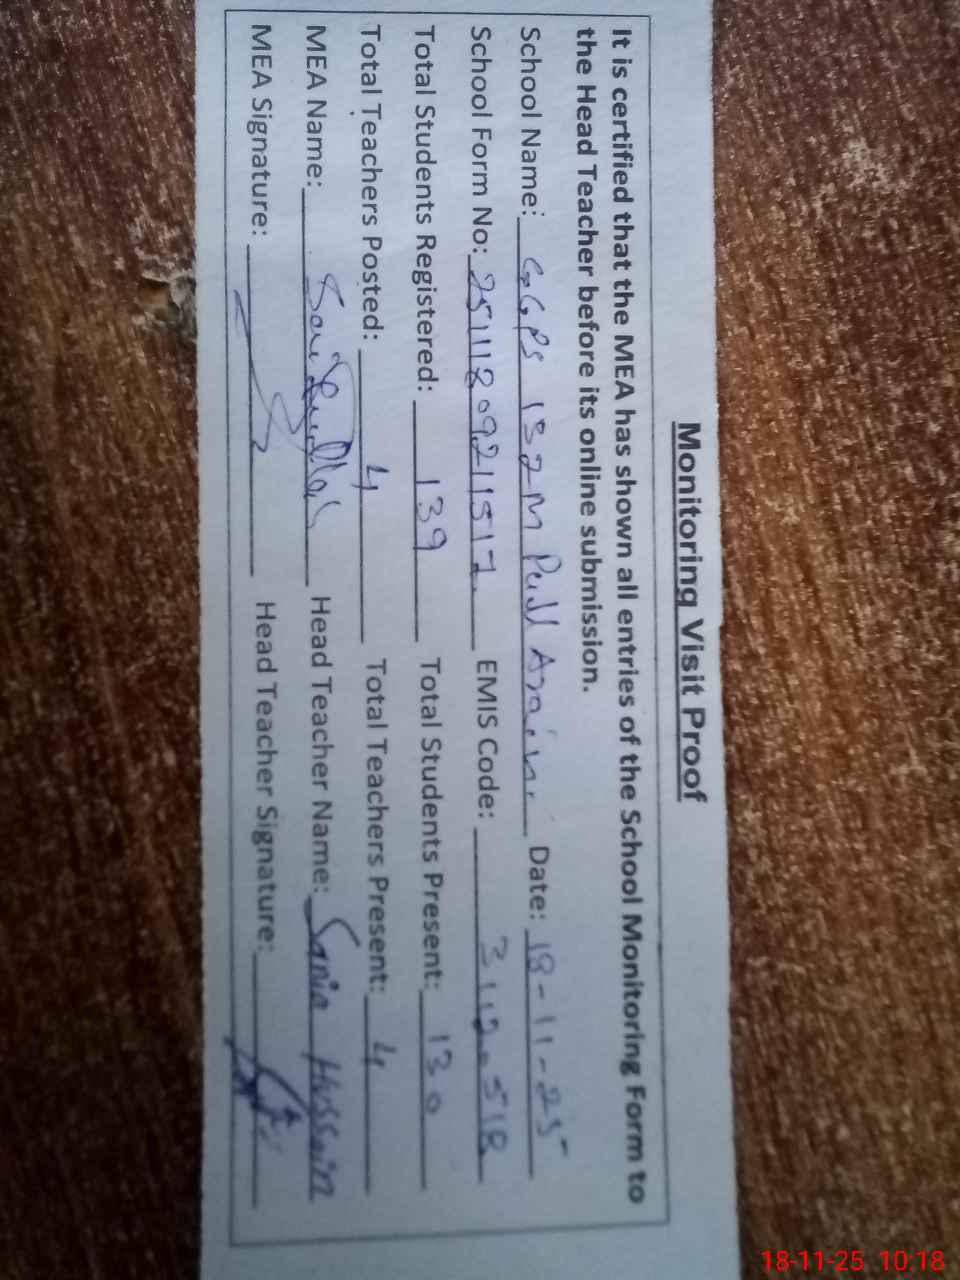 Monitoring Visit Proof
It is certified that the MEA has shown all entries of the School Monitoring Form to
the Head Teacher before its online submission.
School Name: GGPS 132M Pull Arain. Date: 18-11-25
School Form No: 2511180921151 EMIS Code: 3112-518
Total Students Registered: 139 Total Students Present: 130
Total Teachers Posted: 4 Total Teachers Present: 4
MEA Name: Saifullah Head Teacher Name: Sania Hussain
MEA Signature: Head Teacher Signature:
18-11-25 10:18